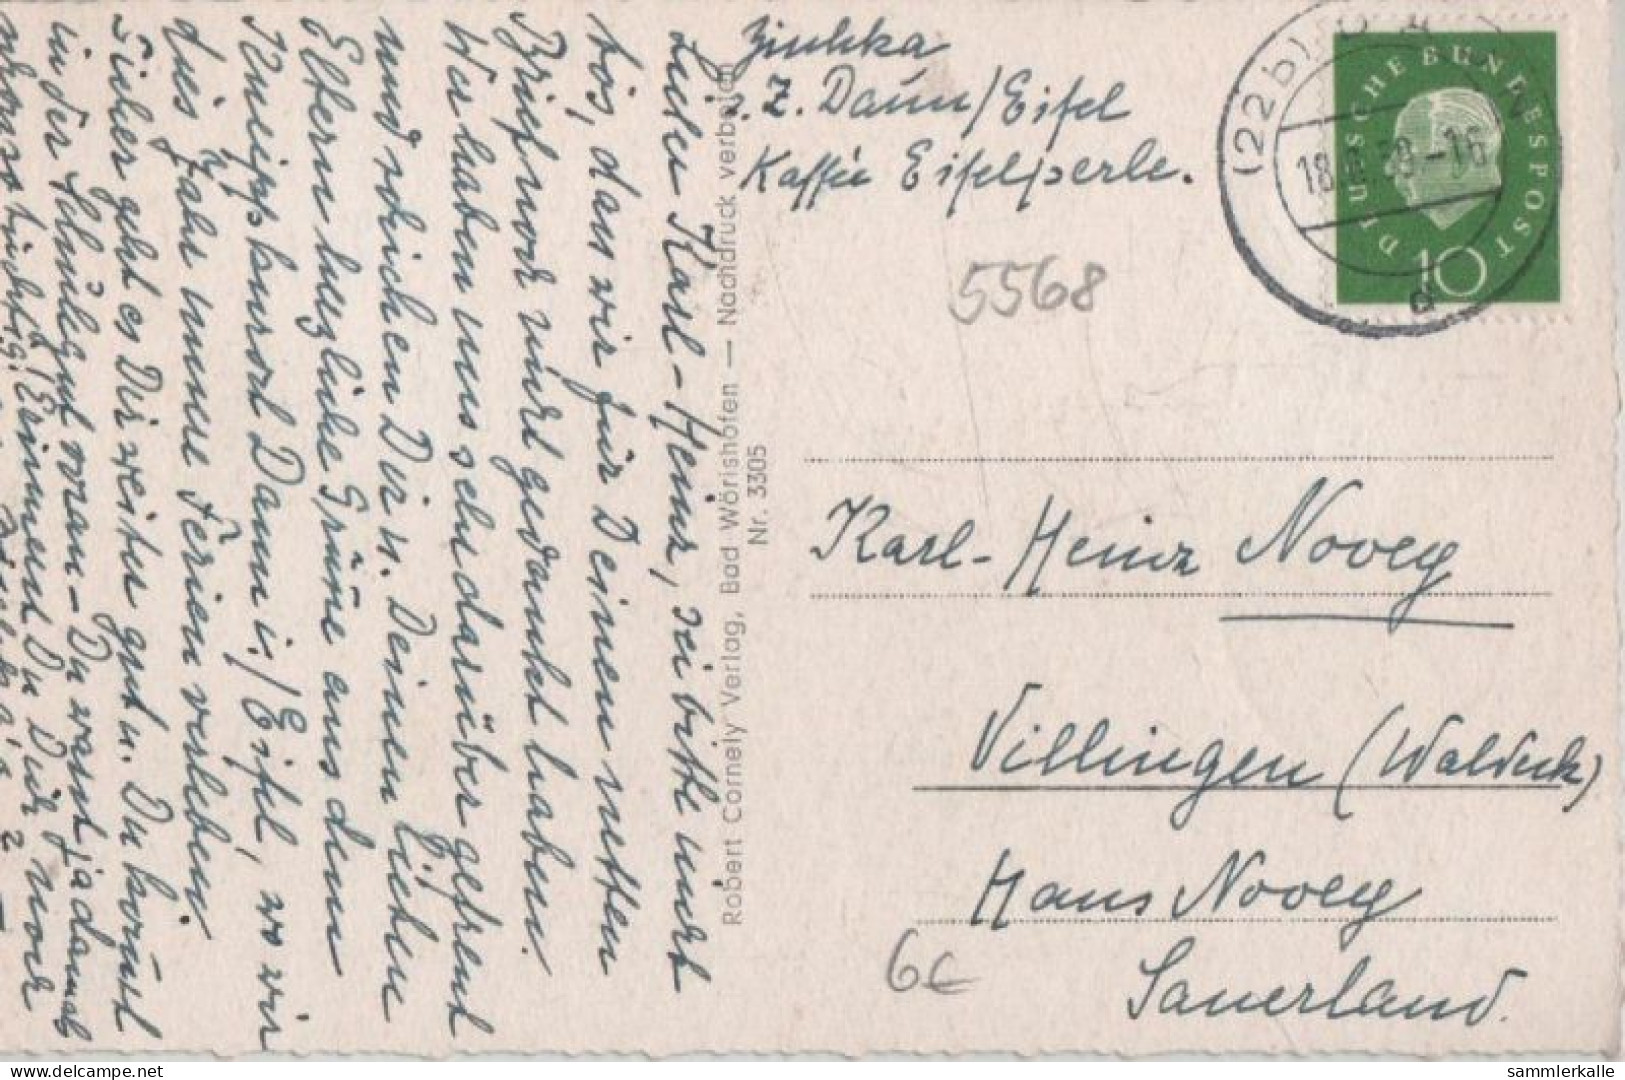 Lieber Karl-Heinz, sei bitte nicht
bös, dass wir für Deinen netten
Brief noch nicht gedankt haben.
Wir haben uns sehr darüber gefreut
und schicken Dir u. Deinen lieben
Eltern herzliche Grüße aus dem
Kneippkurort Daun i./Eifel, wo wir
dies Jahr unsere Ferien verleben.
Sicher geht es Dir weiter gut u. Du kommst
in der Schule gut voran - Du warst ja damals
Erinnerst Du Dich noch
Robert Cornely Verlag, Bad Wörishofen — Nachdruck verboten
Nr. 3305
z. Z. Daun/Eifel
Kaffée Eifelperle.
DEUTSCHE BUNDESPOST
10
(22b)
18
-16
a
5568
Karl-Heinz Novey
Villingen (Waldeck)
Hans Novey
Sauerland.
6€
oldthing.de
sammlerkalle